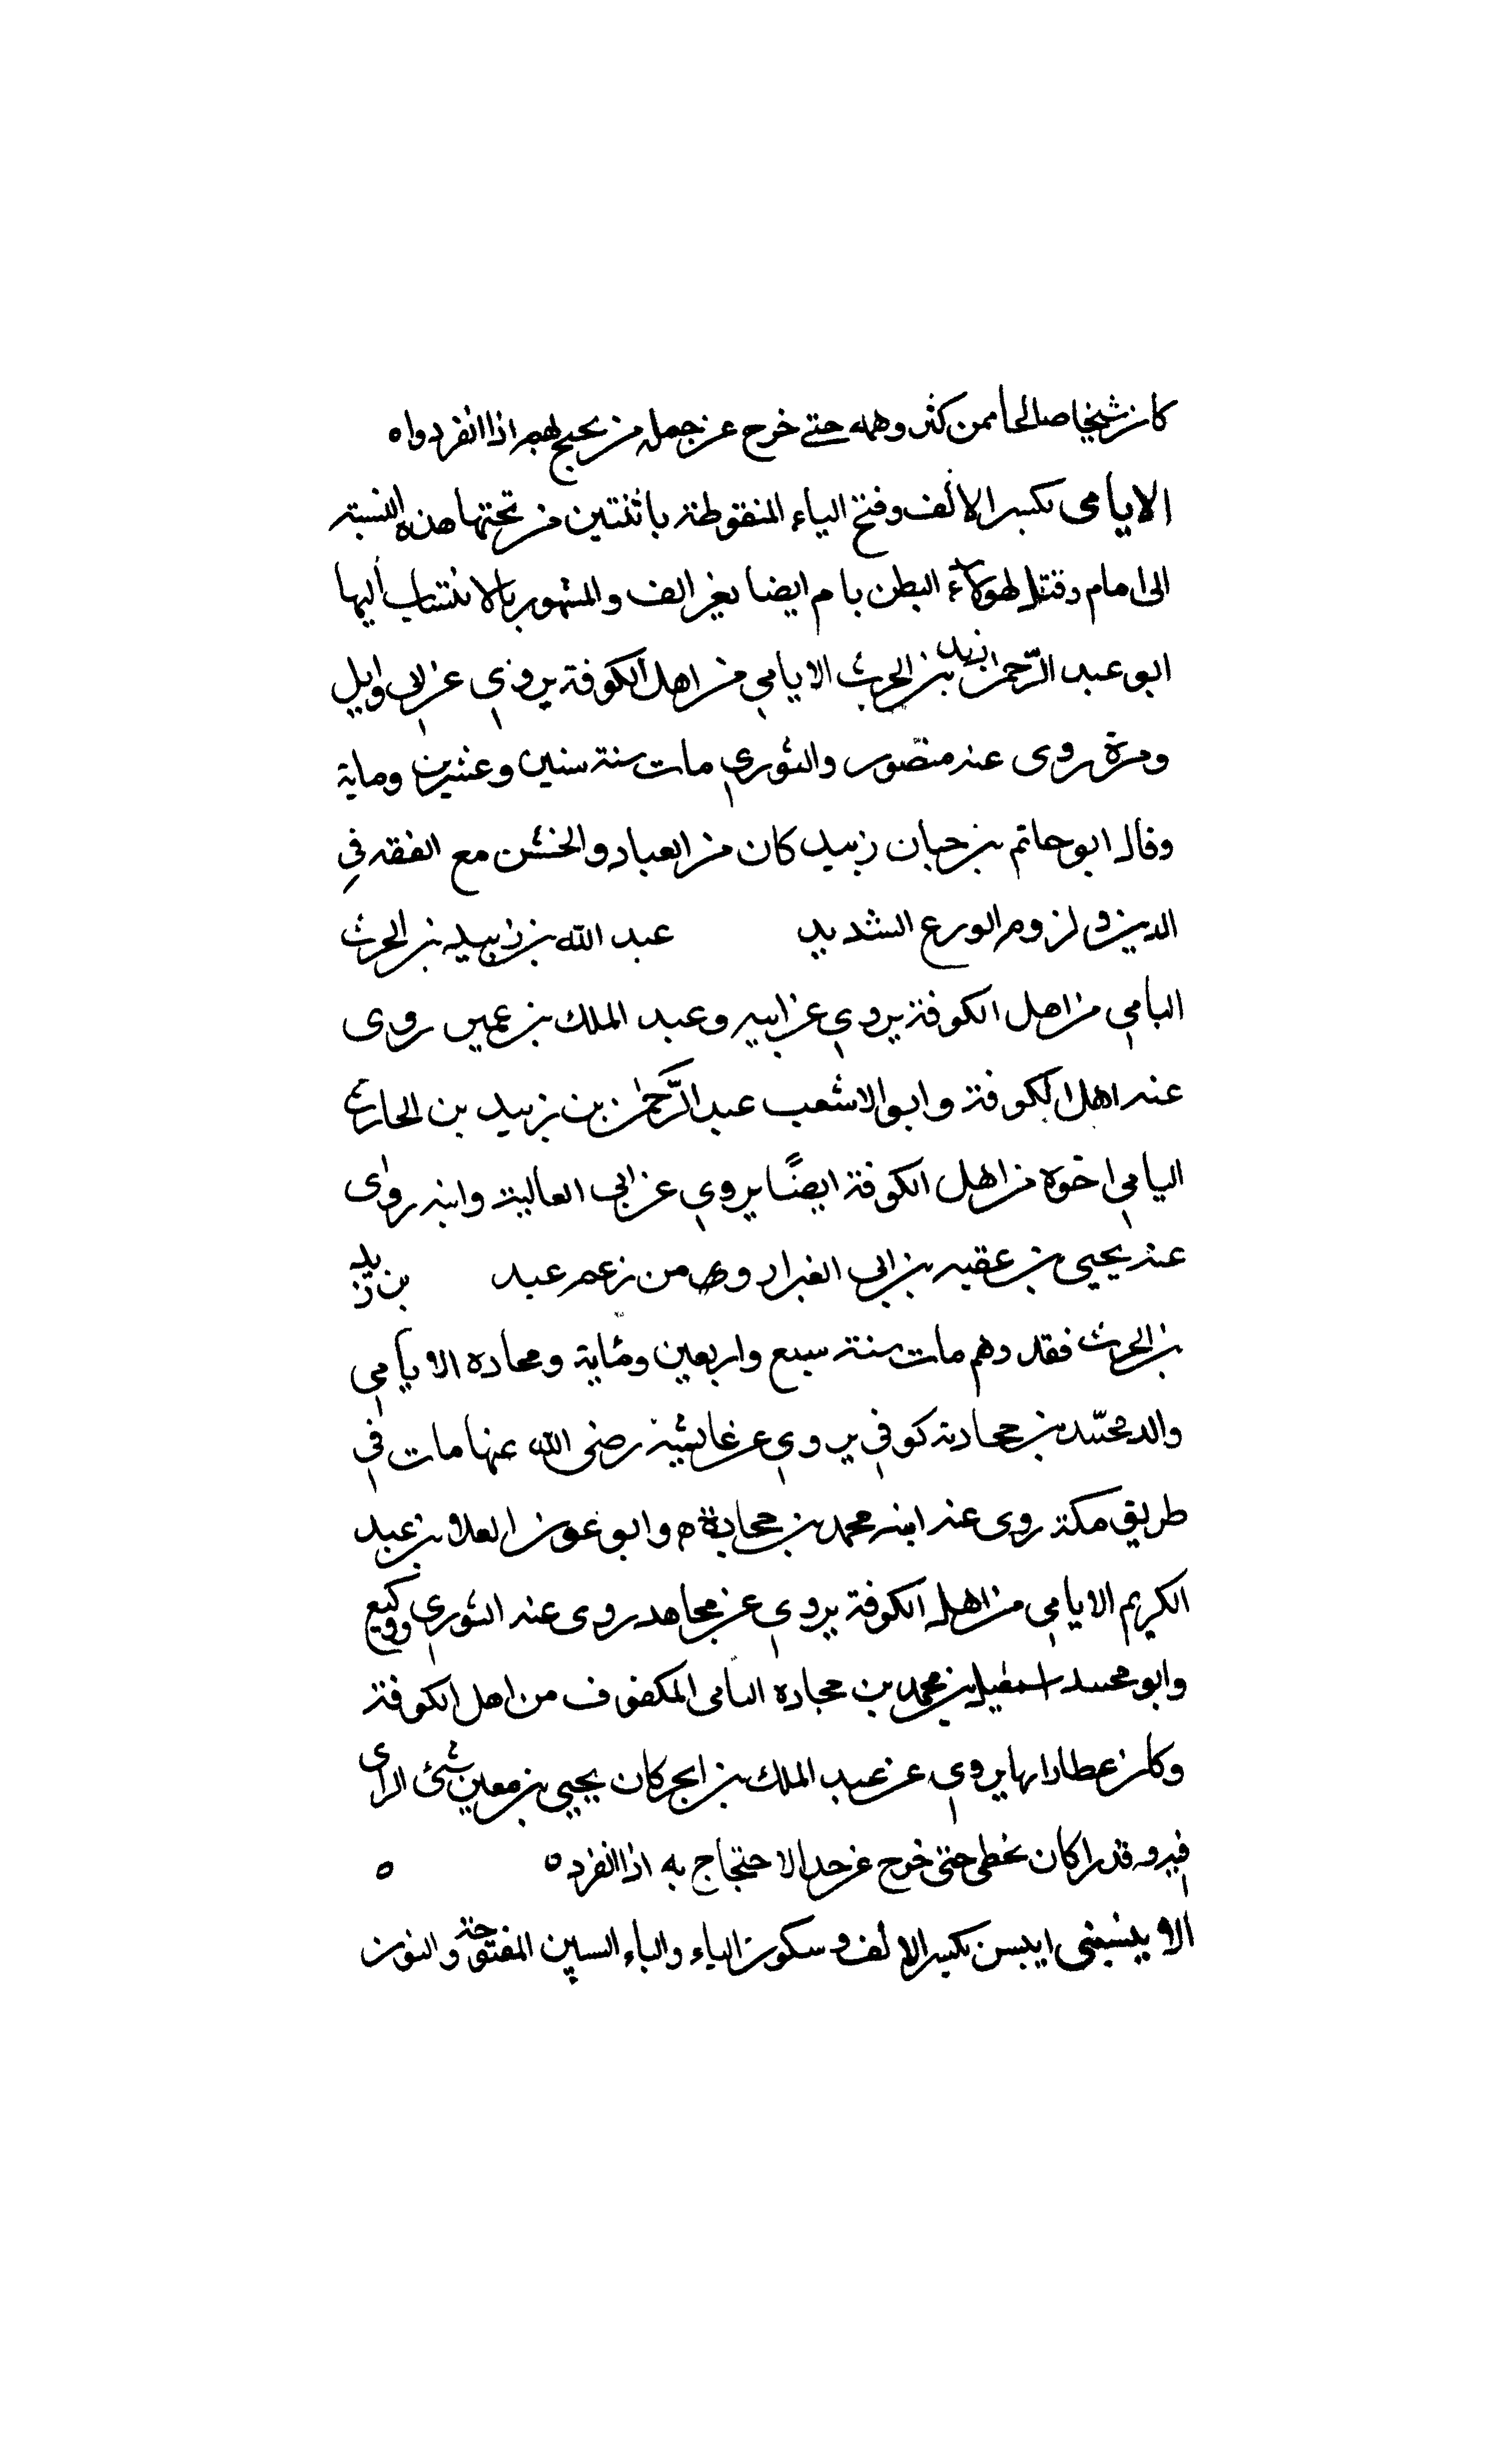 كان شيخا صالحا ممن كثر وهمه حتى خرج عن جملة من يحتج بهم اذا انفردوا ه
الايامى بكسر الالف وفتح الياء المنقوطة باثنتين من تحتها هذه النسبة
الى امام وقتل لهولاء البطن يام ايضا بغير الف والمشهور بالانتساب اليها
ابو عبد الرحمن زبيد بن الحرث الايامي من اهل الكوفة يروى عن ابى وايل
ومرة روى عنه منصور والثوري مات سنة سنين وعشرين وماية
وقال ابو حاتم بن حبان زبيد كان من العباد والخشن مع الفقه في
الدين ولزوم الورع الشديد عبد الله بن زبيد بن الحرث
اليامي من اهل الكوفة يروي عن ابيه وعبد الملك بن عمير روى
عنه اهل الكوفة وابو الاشعب عبد الرحمن بن زبيد بن الحارث
اليامي اخوه من اهل الكوفة ايضًا يروي عن ابى العالية وابنه روى
عنه يحيى بن عقبه بن ابى الغيرار وهو من زعم عبد بن زيد
بن الحرث فقد وهم مات سنة سبع واربعين وماية ومحاده الايامي
والد محمد بن جحادة كوفي يروي عن عايشة رضى الله عنها مات في
طريق مكة روى عنه ابنه محمد بن جحادة ه وابو عون العلا بن عبد
الكريم الايامي من اهل الكوفة يروي عن مجاهد روى عنه الثوري ووكيع
وابو محمد اسمعيل بن محمد بن جحاده اليامى المكفوف من اهل الكوفة
وكان عطارا بها يروي عن عبد الملك بن ابجر كان يحيى بن معين شئ الراى
فيه وقد كان يخطى حتى خرج عن حد الاحتجاج به اذا انفرد ه ه
الايبسنى ايبسن بكسر الالف وسكون الياء والباء السين المفتوحة والنون